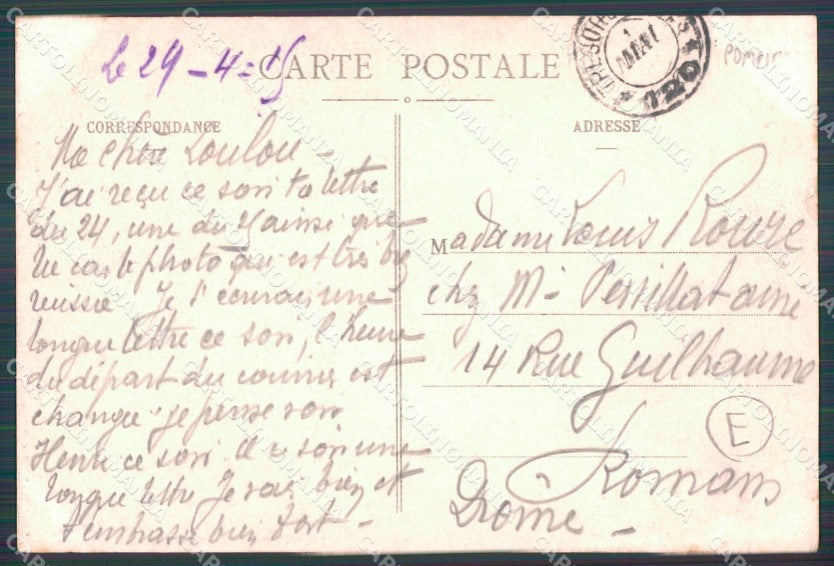 Le 29-4-15
CARTE POSTALE
TRESOR
120
CORRESPONDANCE
ADRESSE
Ma chère Loulou -
J'ai reçu ce soir ta lettre
du 24, une du 21 ainsi que
la carte photo qui est très bien
reussie Je t'ecrirai une
longue lettre ce soir, l'heure
du départ du courrier est
changée je pense voir
Henri ce soir
longue lettre Je vais bien et
t'embrasse bien fort -
Madame Louis Rouire
chez Mr
14 Rue Guilhaume
Romans
Drôme -
E
CARTOLINOMANIA